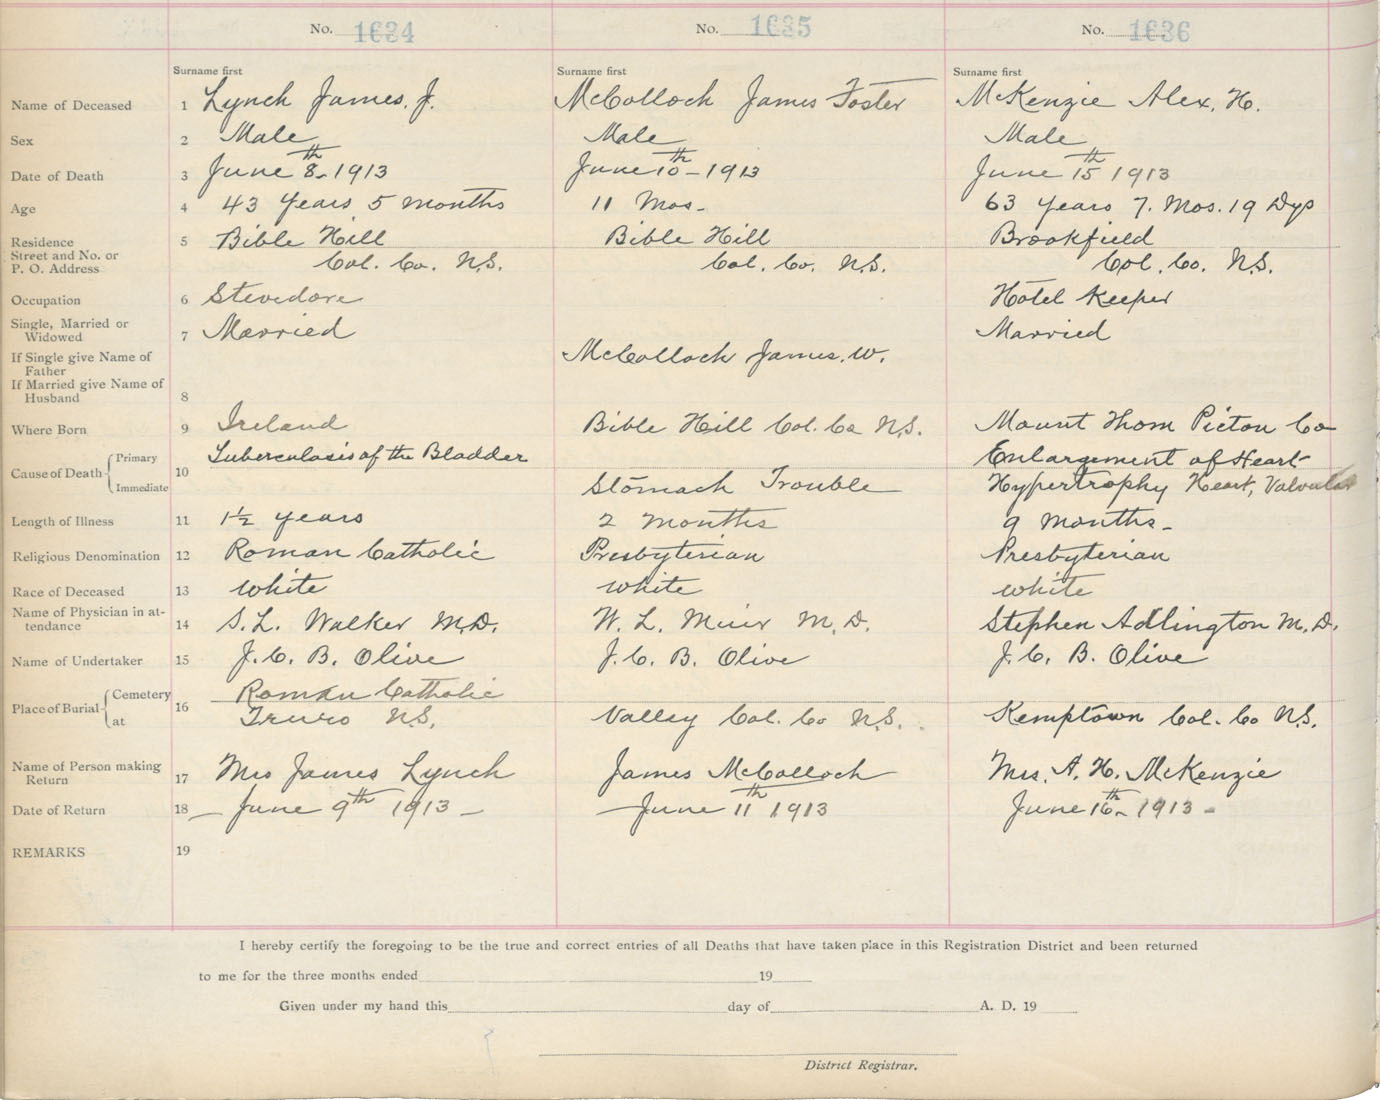 No. 1634 No. 1635 No. 1636
Surname first Surname first Surname first
Name of Deceased 1 Lynch James. J. McCollock James Foster McKenzie Alex. H.
Sex 2 Male Male Male
Date of Death 3 June 8th - 1913 June 10th - 1913 June 15th 1913
Age 4 43 Years 5 months 11 Mos - 63 Years 7. Mos. 19 Dys
Residence 5 Bible Hill Bible Hill Brookfield
Street and No. or
P. O. Address Col. Co. N.S. Col. Co. N.S. Col. Co. N.S.
Occupation 6 Stevedore Hotel Keeper
Single, Married or
Widowed 7 Married Married
If Single give Name of
Father McCollock James. W.
If Married give Name of
Husband 8
Where Born 9 Ireland Bible Hill Col. Co N.S. Mount Thom Picton Co
Cause of Death Primary Tuberculosis of the Bladder Enlargement of Heart
10
Immediate Stomach Trouble Hypertrophy Heart, Valvular
Length of Illness 11 1½ years 2 months 9 months -
Religious Denomination 12 Roman Catholic Presbyterian Presbyterian
Race of Deceased 13 white white white
Name of Physician in at-
tendance 14 S. L. Walker M.D. W. L. Muir M.D. Stephen Adlington M.D.
Name of Undertaker 15 J. C. B. Olive J. C. B. Olive J. C. B. Olive
Place of Burial Cemetery Roman Catholic
16
at Truro N.S. Valley Col. Co N.S. Kemptown Col. Co N.S.
Name of Person making
Return 17 Mrs James Lynch James McCollock Mrs. A. H. McKenzie
Date of Return 18 - June 9th 1913 - - June 11th 1913 June 16th - 1913 -
REMARKS 19
I hereby certify the foregoing to be the true and correct entries of all Deaths that have taken place in this Registration District and been returned
to me for the three months ended 19
Given under my hand this day of A. D. 19
District Registrar.